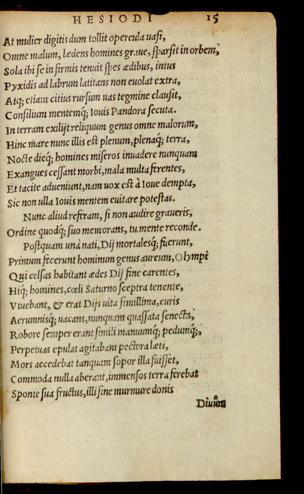 HESIODI 15
At mulier digitis dum tollit opercula vasi,
Omne malum, lædens homines graue, sparsit in orbem,
Sola ibi se in firmis tenuit spes ædibus, intus
Pyxidis ad labrum latitans non euolat extra,
Atq; etiam citius rursum uas tegmine clausit,
Consilium mentemq; Iouis Pandora secuta.
In terram exilijt reliquum genus omne malorum,
Hinc mare nunc illis est plenum, plenaq; terra,
Nocte dieq; homines miseros inuadere nunquam
Exangues cessant morbi, mala multa ferentes,
Et tacite adueniunt, nam uox est à Ioue dempta,
Sic non ulla Iouis mentem euitare potestas.
Nunc aliud referam, si non audire graueris,
Ordine quodq; suo memorans, tu mente reconde.
Postquam unà nati, Dij mortalesq; fuerunt,
Primum fecerunt hominum genus aureum, Olympi
Qui celsas habitant ædes Dij fine carentes,
Hiq; homines, cœli Saturno sceptra tenente,
Viuebant, & erat Dijs uita simillima, curis
Aerumnisq; uacans, nunquam quassata senecta,
Robore semper erant simili manuumq; pedumq;,
Perpetuas epulas agitabant pectora læti,
Mors accedebat tanquam sopor illa fuisset,
Commoda nulla aberant, immensos terra ferebat
Sponte sua fructus, illi sine murmure donis